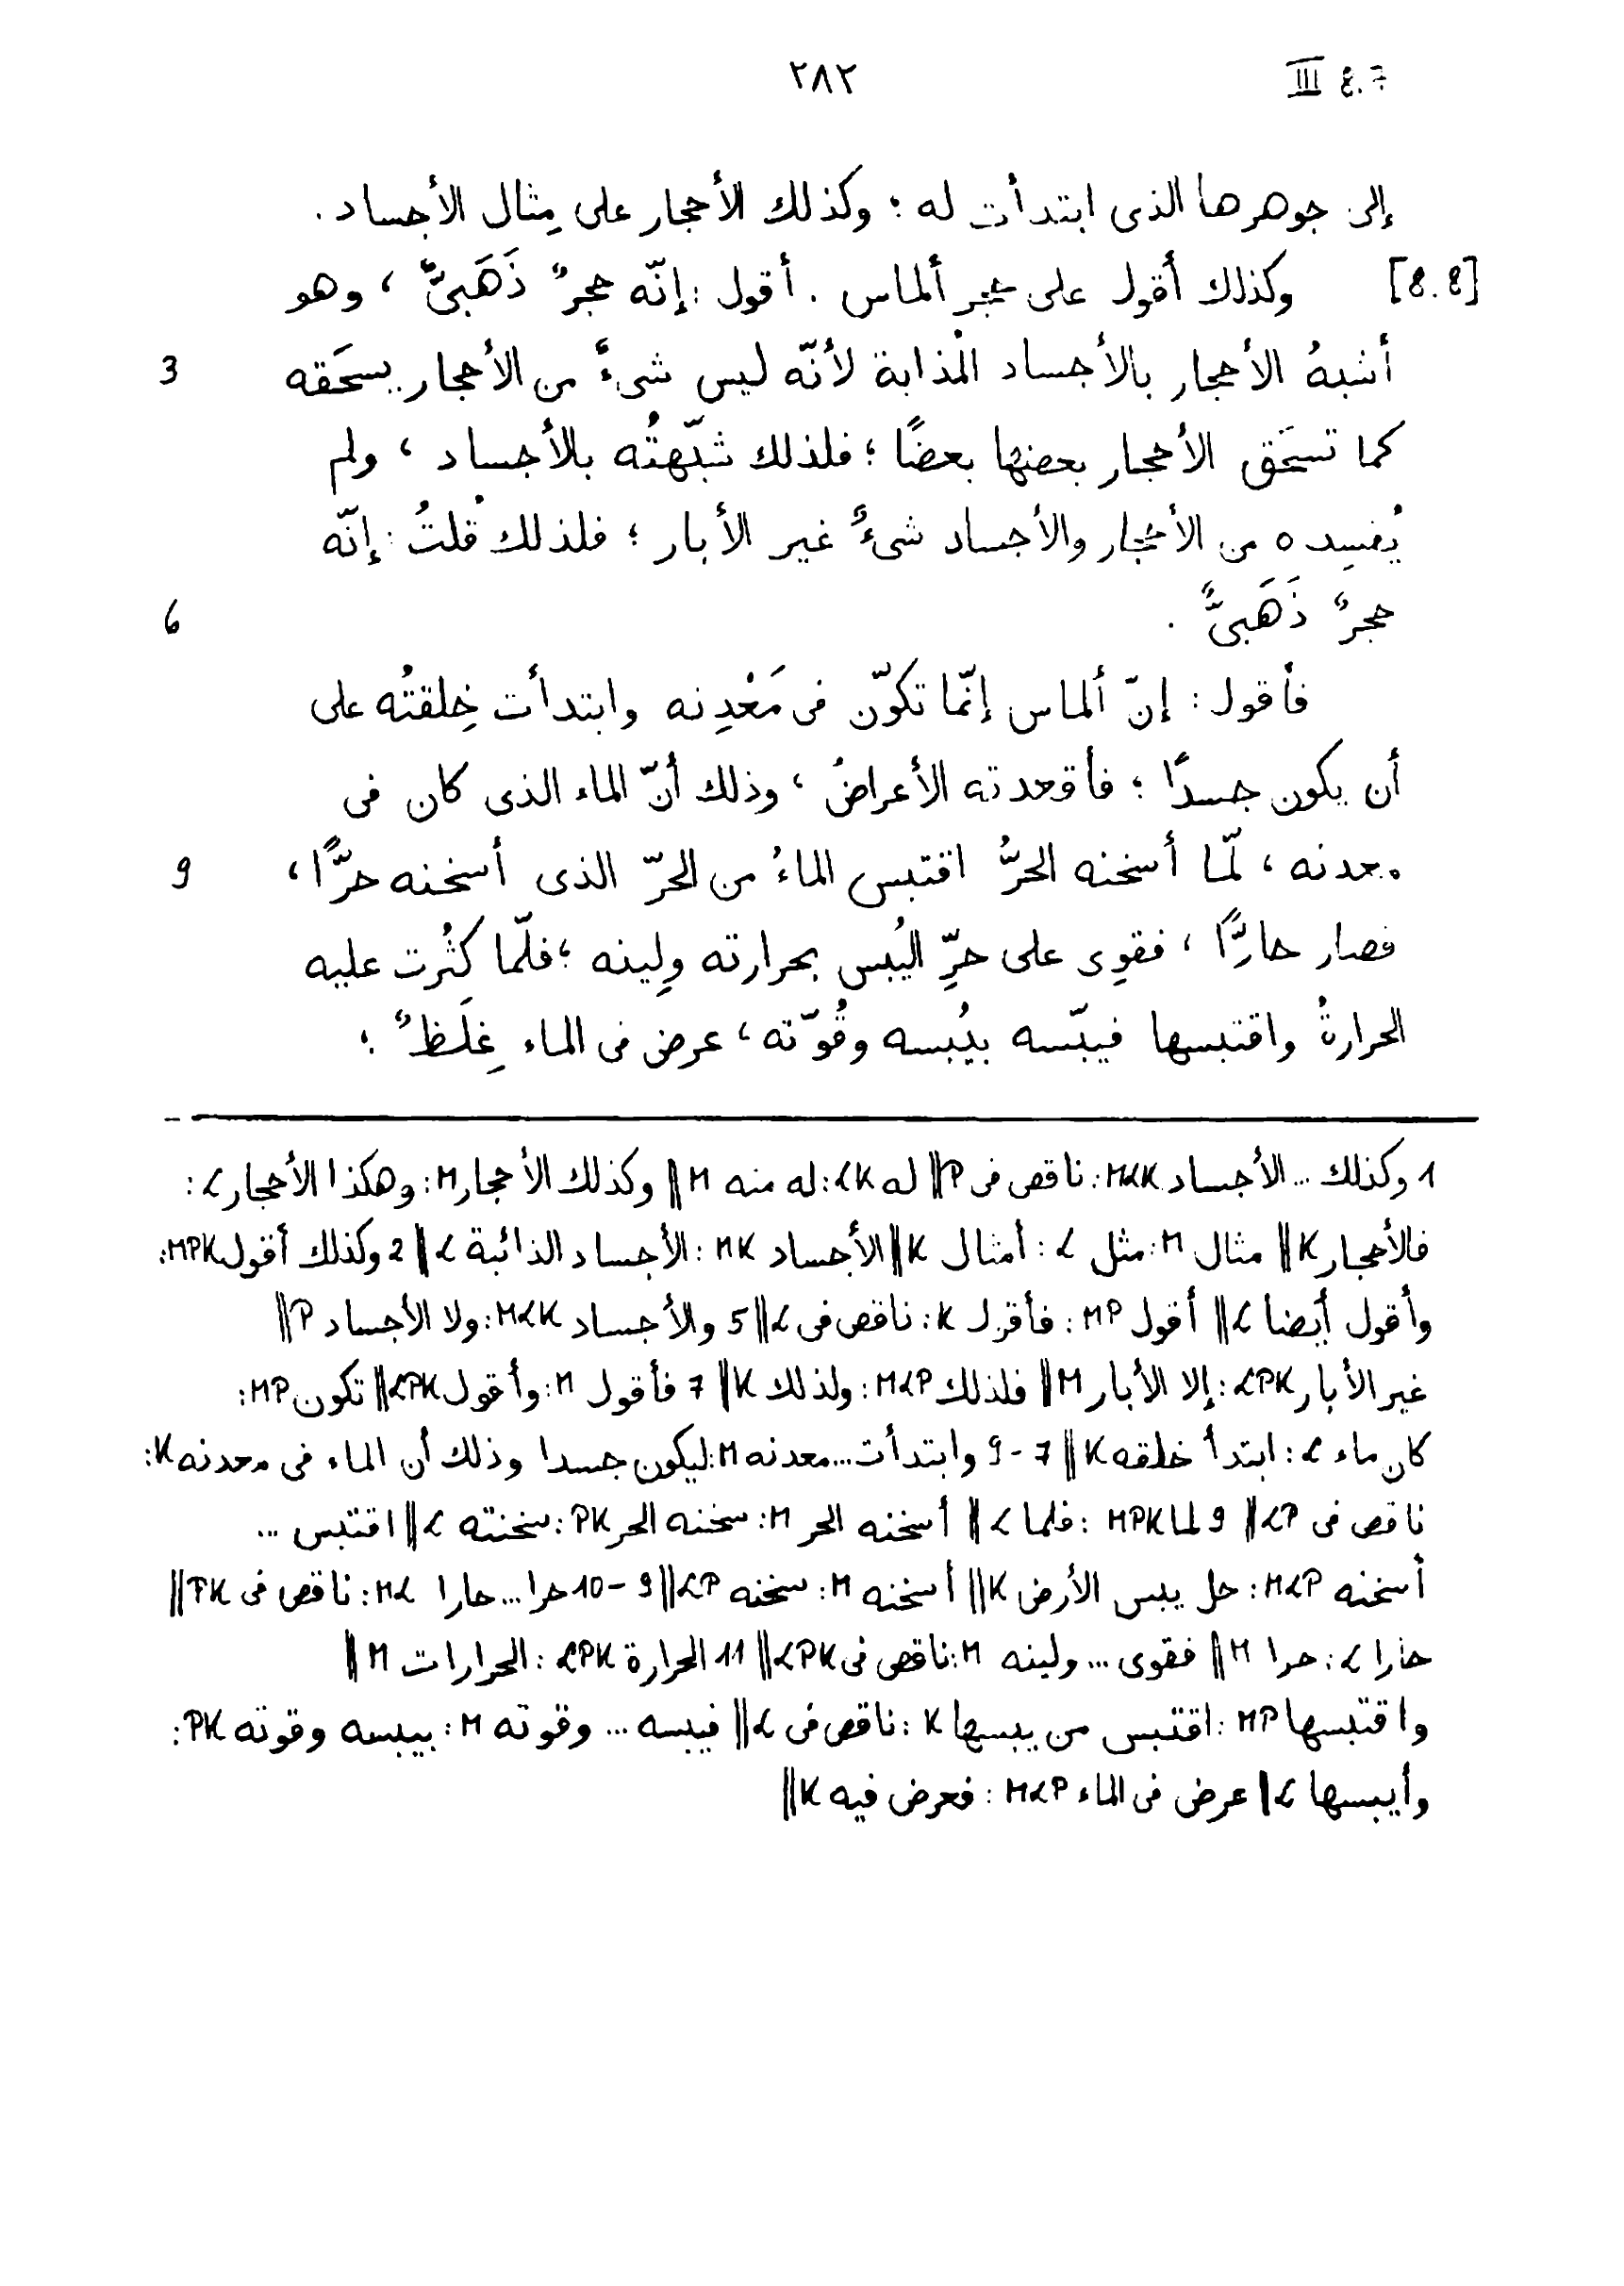 III 8.7 ٢٨٢
إلى جوهرها الذى ابتدأت له ؛ وكذلك الأحجار على مِثال الأجساد .
[8.8] وكذلك أقول على حجر ألماس . أقول : إنّه حجرٌ ذَهَبىٌّ ، وهو
أشبهُ الأحجار بالأجساد المُذابة لأنّه ليس شىءٌ من الأحجار يسحَقه 3
كما تسحَق الأحجار بعضها بعضًا ؛ فلذلك شبّهتُه بالأجساد ، ولم
يُفسِده من الأحجار والأجساد شىءٌ غير الأبار ؛ فلذلك قُلتُ : إنّه
حجرٌ ذَهَبىٌّ . 6
فأقول : إنّ ألماس إنّما تكوّن فى مَعْدِنه وابتدأت خِلقتُه على
أن يكون جسدًا ؛ فأقعدته الأعراضُ ، وذلك أنّ الماء الذى كان فى
معدنه ، لمّا أسخنه الحرُّ اقتبس الماءُ من الحرّ الذى أسخنه حرًّا ، 9
فصار حارًّا ، فقوِى على حرِّ اليُبس بحرارته ولِينه ؛ فلمّا كثُرت عليه
الحرارةُ واقتبسها فيبّسه بيُبسه وقُوّته ، عرض فى الماء غِلَظٌ ؛
1 وكذلك ... الأجساد MLK : ناقص فى P || له LK : له منه M || وكذلك الأحجار M : وهكذا الأحجار L :
فالأحجار K || مثال M : مثل L : أمثال K || الأجساد MK : الأجساد الذائبة L || 2 وكذلك أقول MPK :
وأقول أيضا L || أقول MP : فأقول K : ناقص فى L || 5 والأجساد MLK : ولا الأجساد P ||
غير الأبار LPK : إلا الأبار M || فلذلك MLP : ولذلك K || 7 فأقول M : وأقول LPK || تكون MP :
كان ماء L : ابتدأ خلقه K || 7-9 وابتدأت ... معدنه M : ليكون جسدا وذلك أن الماء فى معدنه K :
ناقص فى LP || 9 لما MPK : فلما L || أسخنه الحر M : سخنه الحر PK : سخنته L || اقتبس ...
أسخنه MLP : حل يبس الأرض K || أسخنه M : سخنه LP || 9-10 حرا ... حارا ML : ناقص فى PK ||
حارا L : حرا M || فقوى ... ولينه M : ناقص فى LPK || 11 الحرارة LPK : الحرارات M ||
واقتبسها MP : اقتبس من يبسها K : ناقص فى L || فيبسه ... وقوته M : بيبسه وقوته PK :
وأيبسها L || عرض فى الماء MLP : فعرض فيه K ||